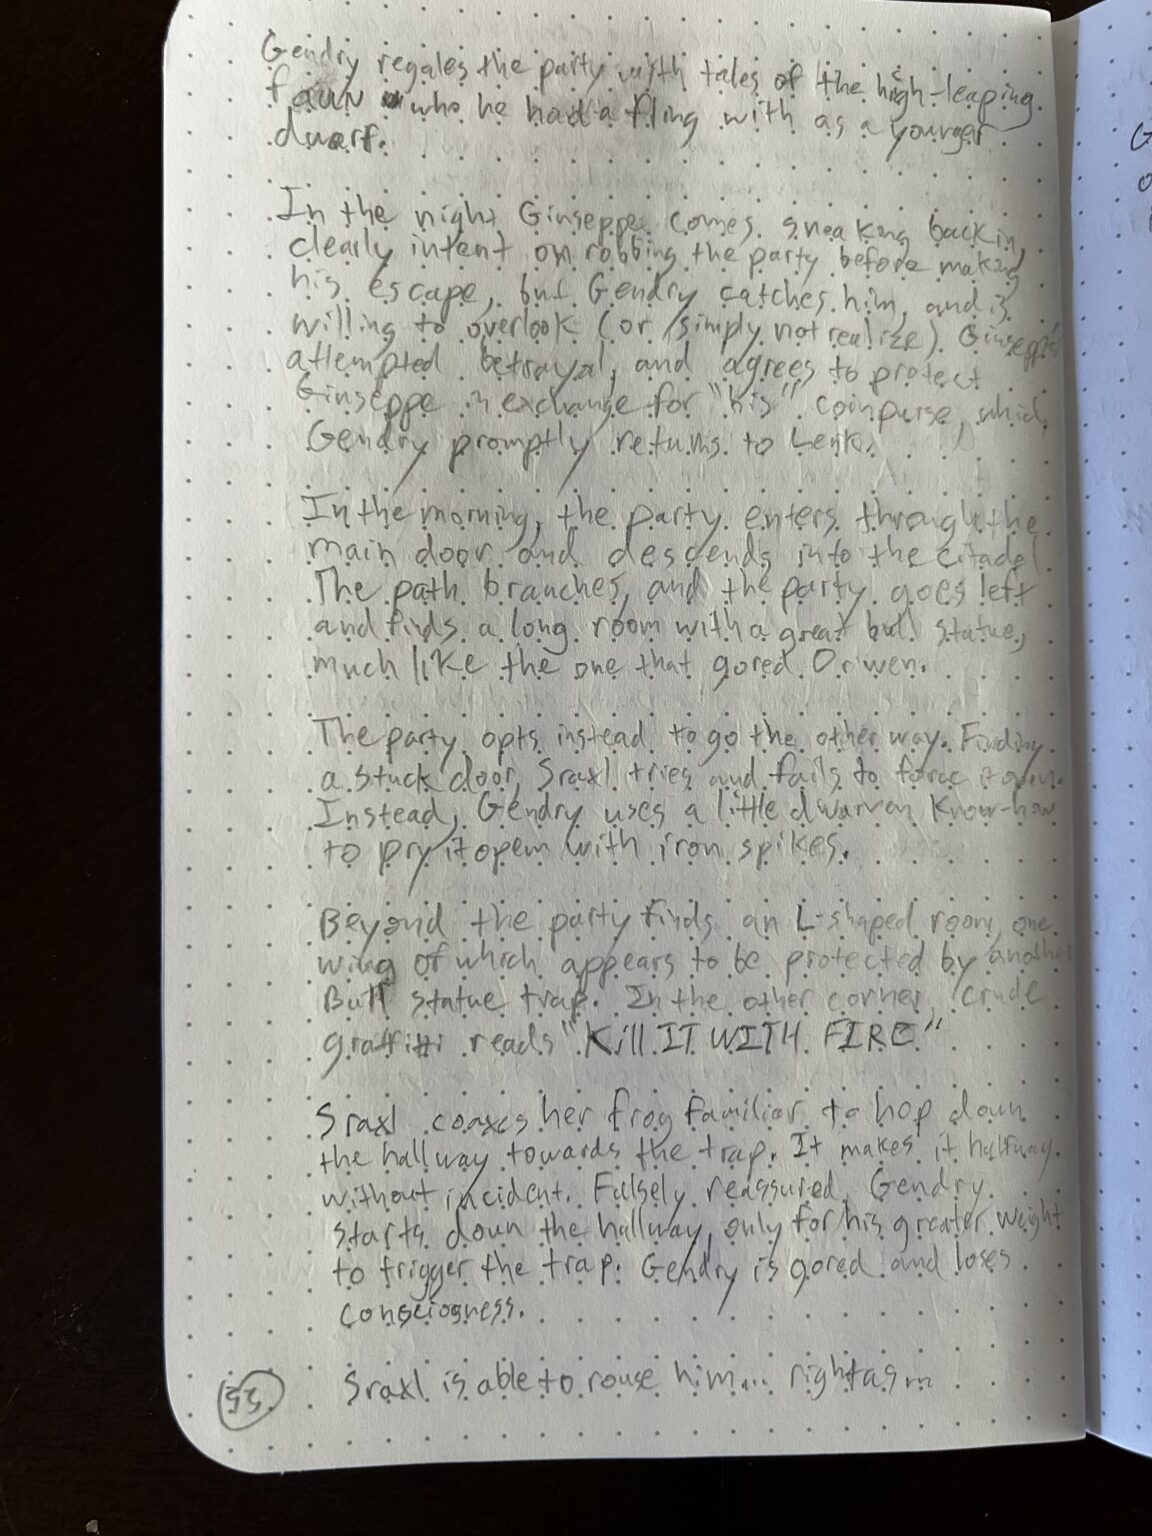 Gendry regales the party with tales of the high-leaping
faun who he had a fling with as a younger
dwarf.
In the night Giuseppe comes sneaking back in,
clearly intent on robbing the party before making
his escape, but Gendry catches him, and is
willing to overlook (or simply not realize) Giuseppe's
attempted betrayal, and agrees to protect
Giuseppe in exchange for "his" coinpurse, which
Gendry promptly returns to Lenk.
In the morning, the party enters through the
main door and descends into the citadel
The path branches, and the party goes left
and finds a long room with a great bull statue,
much like the one that gored Orwen.
The party opts instead to go the other way. Finding
a stuck door, Sraxl tries and fails to force it open.
Instead, Gendry uses a little dwarven know-how
to pry it open with iron spikes.
Beyond the party finds an L-shaped room, one
wing of which appears to be protected by another
Bull statue trap. In the other corner, crude
graffiti reads "Kill IT WITH FIRE"
Sraxl coaxes her frog familiar to hop down
the hallway towards the trap. It makes it halfway
without incident. Falsely reassured, Gendry
starts down the hallway, only for his greater weight
to trigger the trap. Gendry is gored and loses
consciogness.
Sraxl is able to rouse him... right as